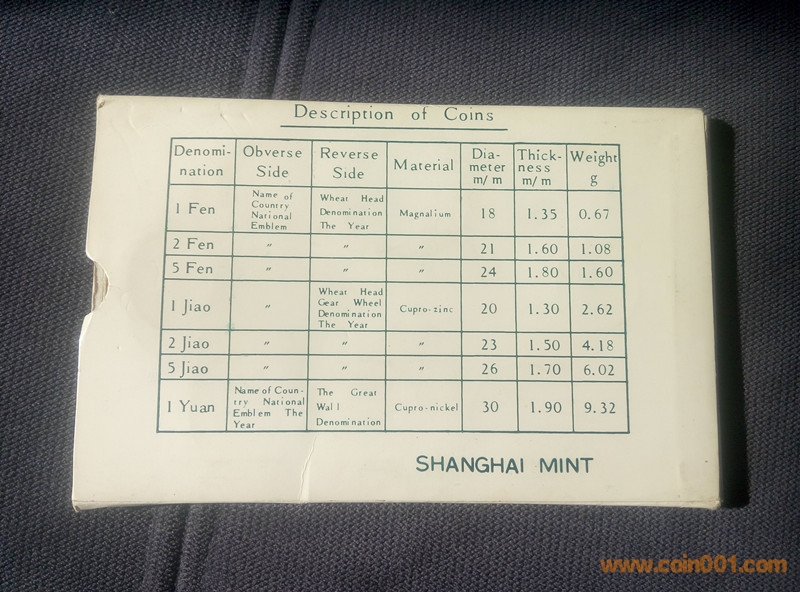 Description of Coins
Denomi-nation Obverse Side Reverse Side Material Dia-meter m/m Thick-ness m/m Weight g
1 Fen Name of Country National Emblem Wheat Head Denomination The Year Magnalium 18 1.35 0.67
2 Fen 〃 〃 〃 21 1.60 1.08
5 Fen 〃 〃 〃 24 1.80 1.60
1 Jiao 〃 Wheat Head Gear Wheel Denomination The Year Cupro-zinc 20 1.30 2.62
2 Jiao 〃 〃 〃 23 1.50 4.18
5 Jiao 〃 〃 〃 26 1.70 6.02
1 Yuan Name of Coun-try National Emblem The Year The Great Wall Denomination Cupro-nickel 30 1.90 9.32
SHANGHAI MINT
www.coin001.com